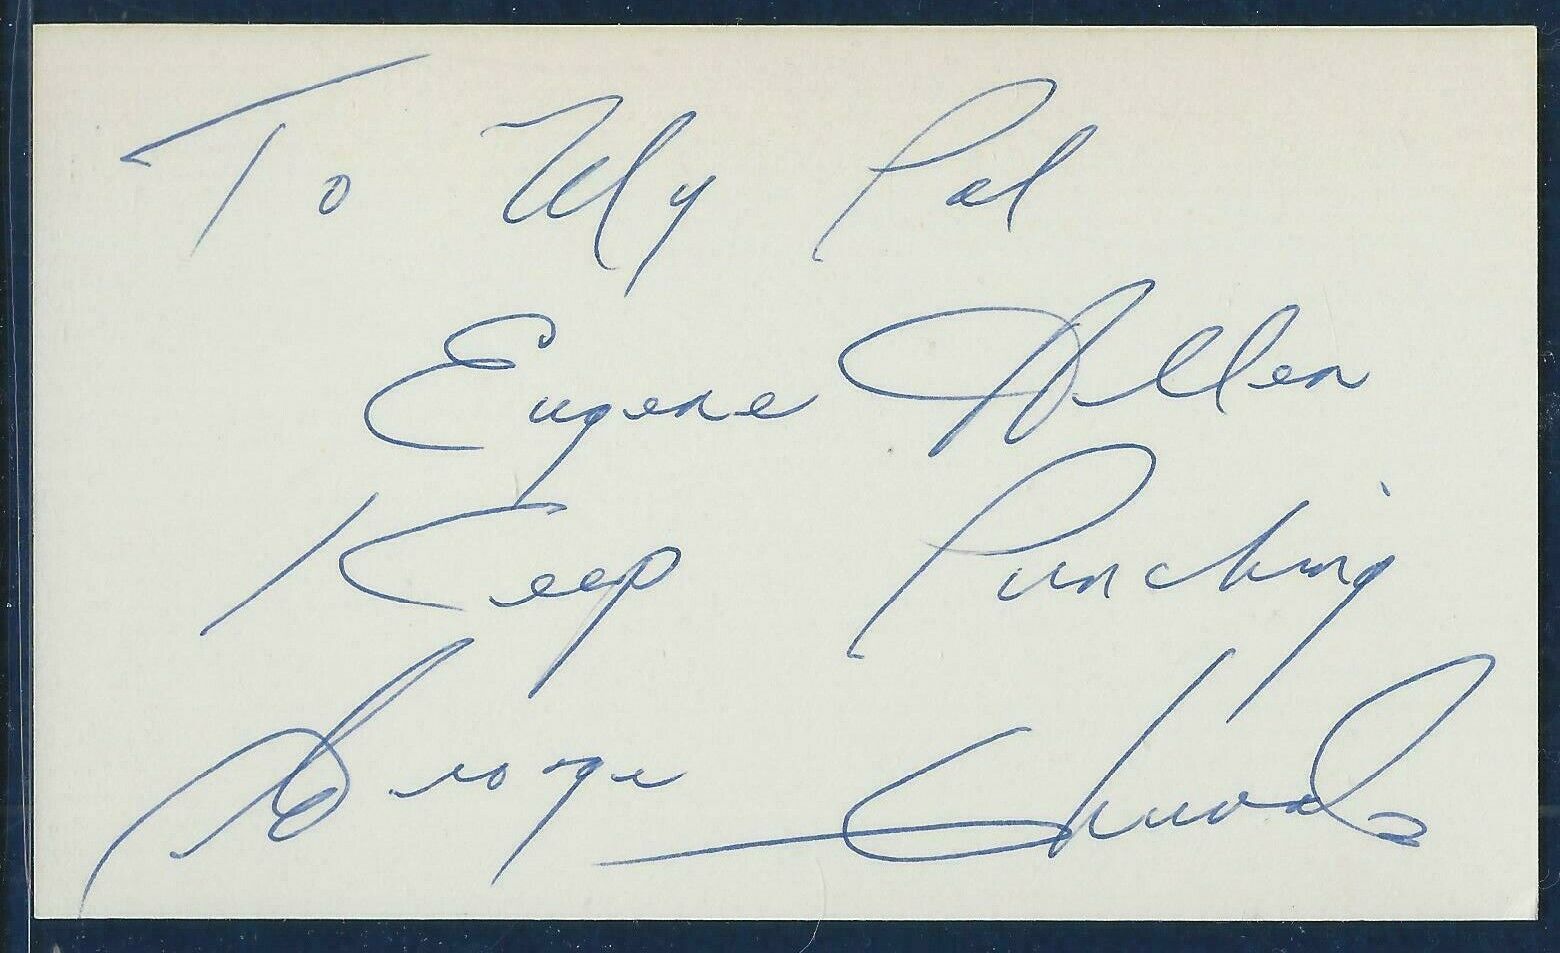 To My Pal
Eugene Allen
Keep Punching
George Chuvalo